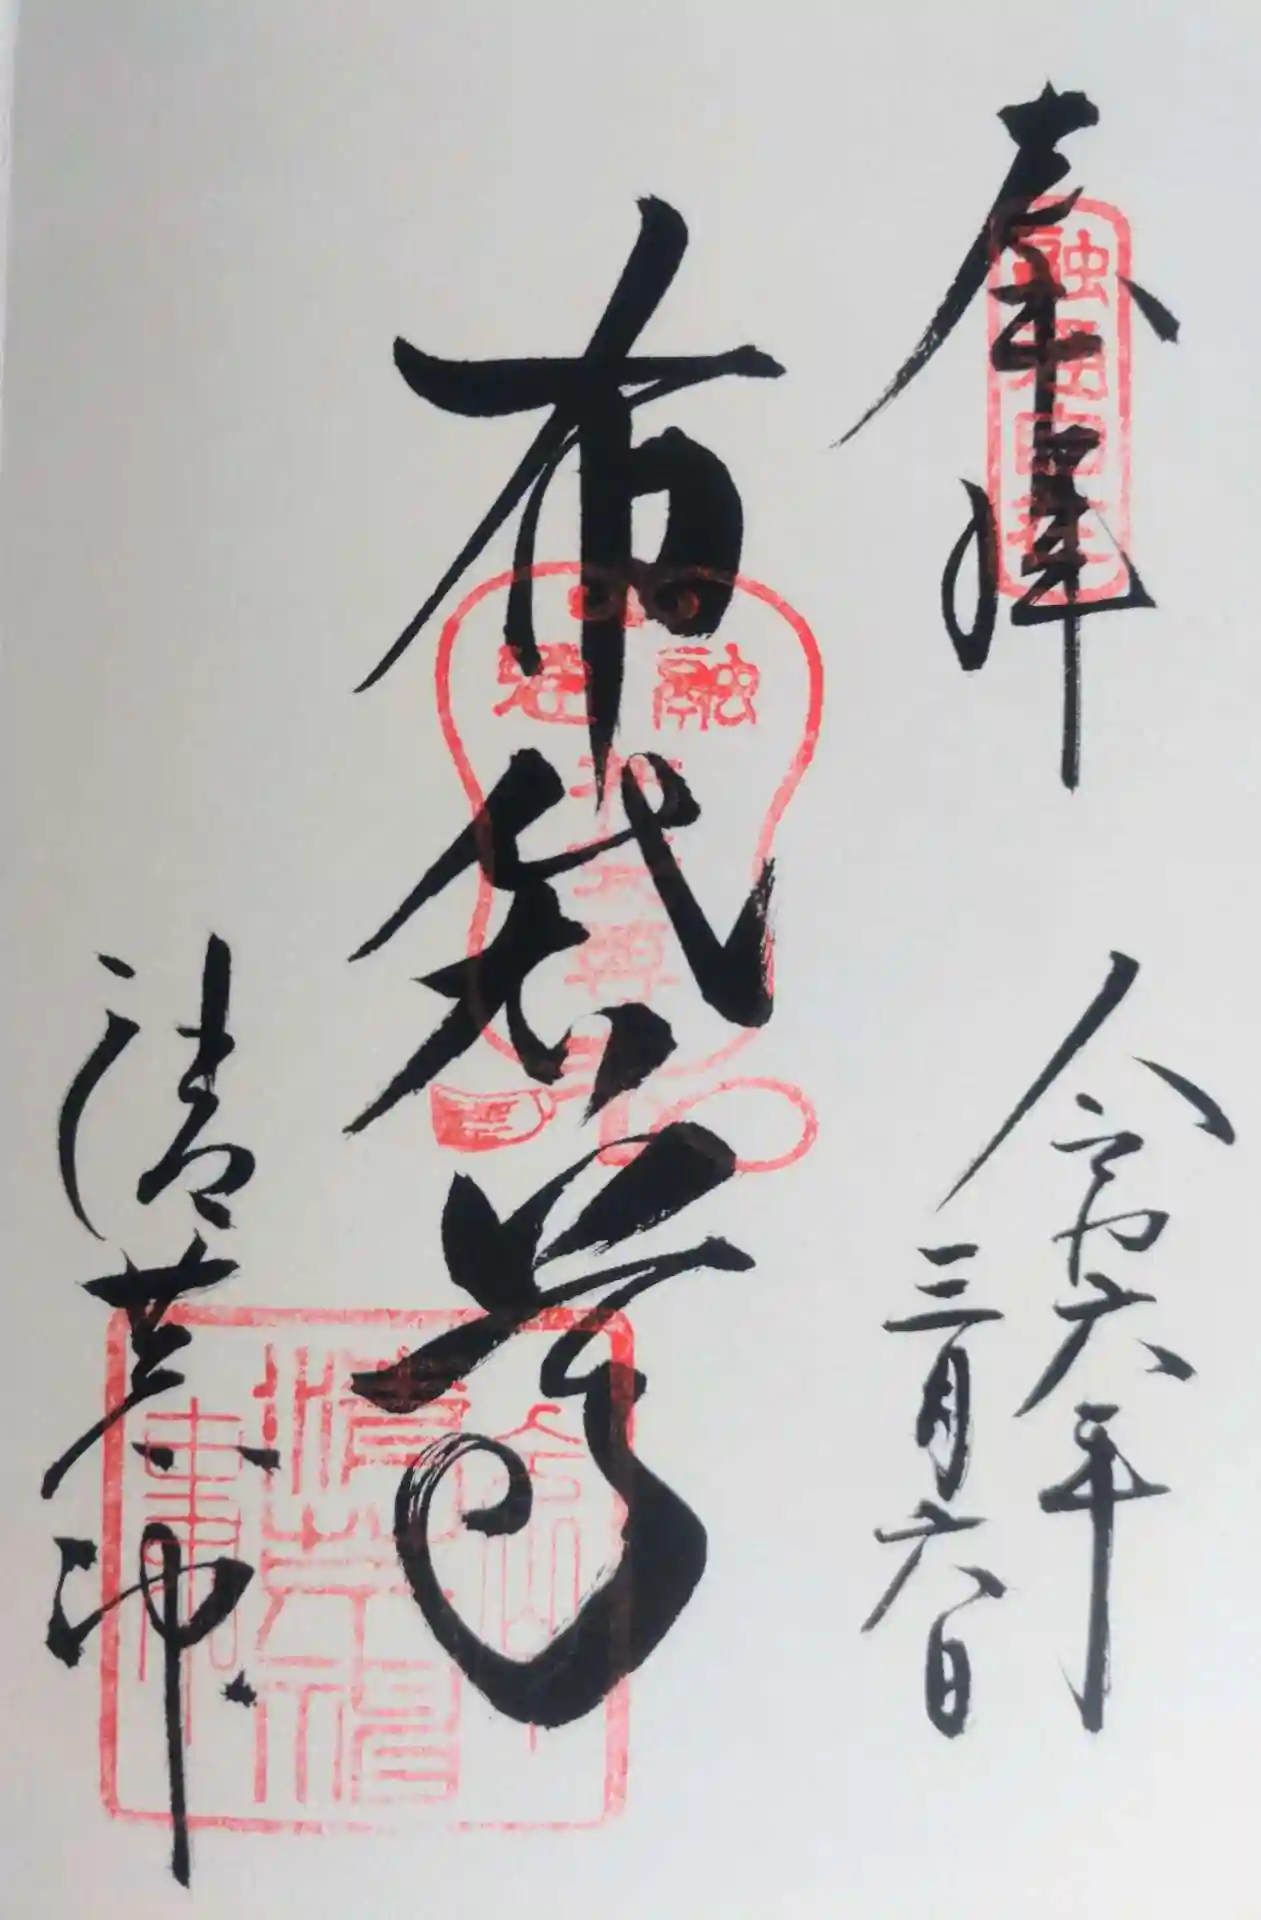 奉拝
令和六年
三月六日
布袋尊
融通
清荒神